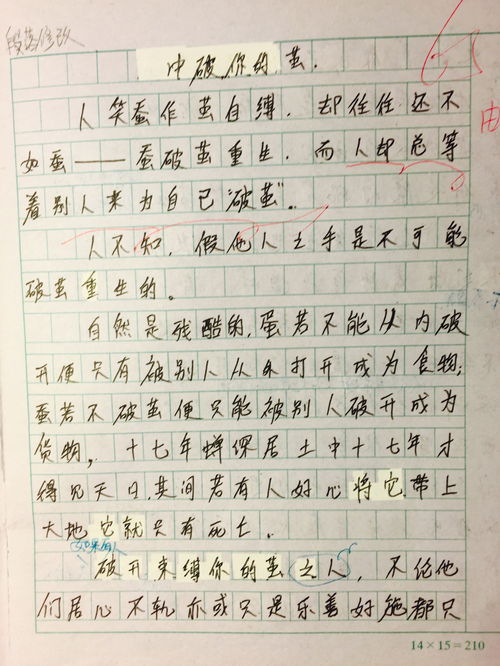 段落修改
冲破你的茧.
人笑蚕作茧自缚，却往往还不
如蚕——蚕破茧重生，而人却总等
着别人来为自己“破茧”。
人不知，假他人之手是不可能
破茧重生的。
自然是残酷的,蛋若不能从内破
开便只有被别人从外打开成为食物;
蚕若不破茧便只能被别人破开成为
货物。十七年蝉深居土中十七年才
得见天日,其间若有人好心将它带上
大地它就只有死亡.
如果有人
破开束缚你的茧之人，不论他
们居心不轨亦或只是乐善好施都只
由
14×15=210